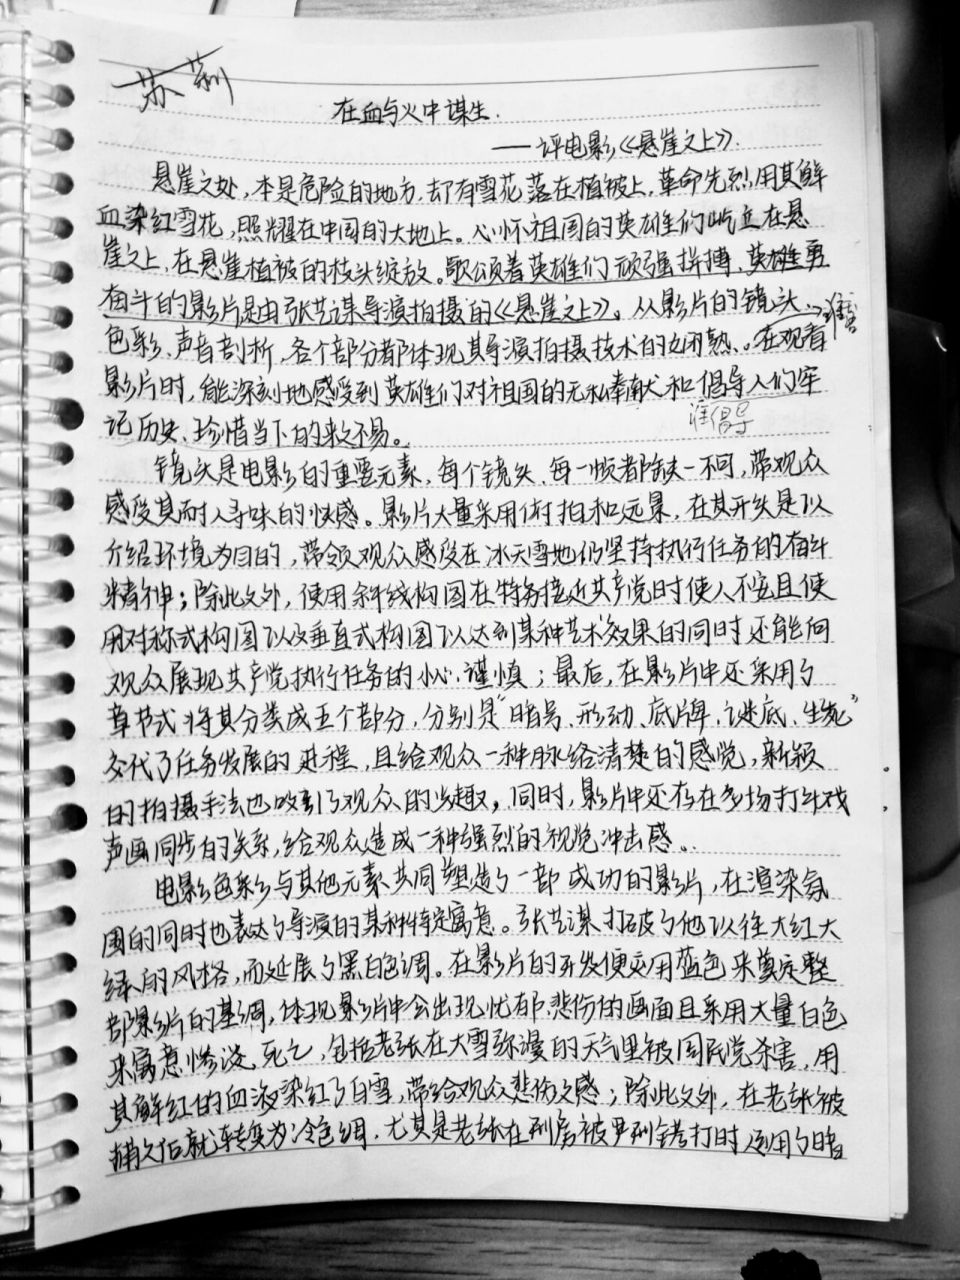 苏莉
在血与火中谋生.
——评电影《悬崖之上》.
悬崖之处,本是危险的地方,却有雪花落在植被上,革命先烈用其鲜
血染红雪花,照耀在中国的大地上。心怀祖国的英雄们屹立在悬
崖之上,在悬崖植被的枝头绽放。歌颂着英雄们顽强拼搏、英雄勇
奋斗的影片是由张艺谋导演拍摄的《悬崖之上》。从影片的镜头、
色彩、声音剖析,各个部分都体现其导演拍摄技术的娴熟、。在观看
影片时,能深刻地感受到英雄们对祖国的无私奉献和倡导人们牢
谁倡导
记历史、珍惜当下的来之不易。
镜头是电影的重要元素,每个镜头、每一帧都缺一不可,带观众
感受其耐人寻味的快感。影片大量采用俯拍和远景,在其开头是以
介绍环境为目的,带领观众感受在冰天雪地仍坚持执行任务的奋斗
精神;除此之外,使用斜线构图在特务接近共产党时使人不安且使
用对称式构图以及垂直式构图以达到某种艺术效果的同时还能向
观众展现共产党执行任务的小心、谨慎;最后,在影片中还采用了
章节式将其分类成五个部分,分别是“暗号、形动、底牌、谜底、生死”
交代了任务发展的进程,且给观众一种脉络清楚的感觉,新颖
的拍摄手法也吸引了观众的兴趣,同时,影片中还存在多场打斗戏
声画同步的关系,给观众造成一种强烈的视觉冲击感。
电影色彩与其他元素共同塑造了一部成功的影片,在渲染氛
围的同时也表达了导演的某种特定寓意。张艺谋打破了他以往大红大
绿的风格,而延展了黑白色调。在影片的开发便采用蓝色来奠定整
部影片的基调,体现影片中会出现忧郁、悲伤的画面且采用大量白色
来寓意惨淡、死亡,包括老张在大雪弥漫的天气里被国民党杀害,用
其鲜红的血液染红了白雪,带给观众悲伤之感;除此之外,在老张被
捕之后就转换为冷色调,尤其是老张在刑房被严刑拷打时运用了暗